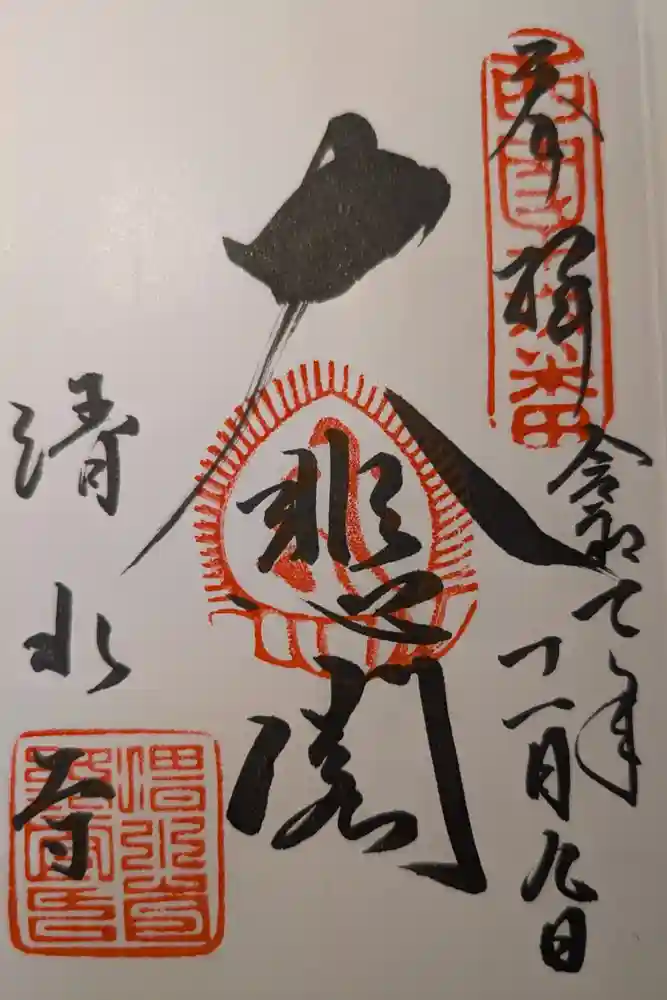 奉拝
令和二年十一月九日
大悲閣
清水寺